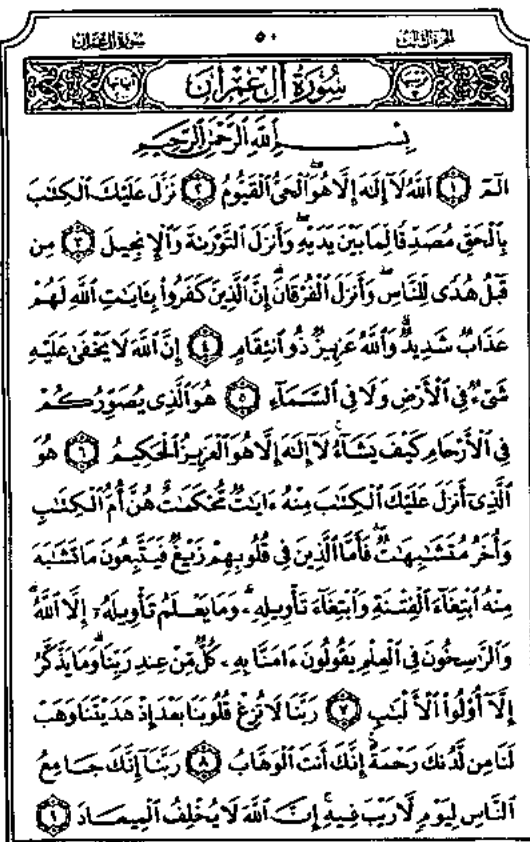 الجزء الثالث ٥٠ سورة آل عمران
سُورَةُ آلِ عِمْرَانَ
بِسْمِ ٱللَّهِ ٱلرَّحْمَٰنِ ٱلرَّحِيمِ
الٓمٓ ١ ٱللَّهُ لَآ إِلَٰهَ إِلَّا هُوَ ٱلْحَىُّ ٱلْقَيُّومُ ٢ نَزَّلَ عَلَيْكَ ٱلْكِتَٰبَ
بِٱلْحَقِّ مُصَدِّقًا لِّمَا بَيْنَ يَدَيْهِ وَأَنزَلَ ٱلتَّوْرَىٰةَ وَٱلْإِنجِيلَ ٣ مِن
قَبْلُ هُدًى لِّلنَّاسِ وَأَنزَلَ ٱلْفُرْقَانَ إِنَّ ٱلَّذِينَ كَفَرُوا۟ بِـَٔايَٰتِ ٱللَّهِ لَهُمْ
عَذَابٌ شَدِيدٌ وَٱللَّهُ عَزِيزٌ ذُو ٱنتِقَامٍ ٤ إِنَّ ٱللَّهَ لَا يَخْفَىٰ عَلَيْهِ
شَىْءٌ فِى ٱلْأَرْضِ وَلَا فِى ٱلسَّمَآءِ ٥ هُوَ ٱلَّذِى يُصَوِّرُكُمْ
فِى ٱلْأَرْحَامِ كَيْفَ يَشَآءُ لَآ إِلَٰهَ إِلَّا هُوَ ٱلْعَزِيزُ ٱلْحَكِيمُ ٦ هُوَ
ٱلَّذِىٓ أَنزَلَ عَلَيْكَ ٱلْكِتَٰبَ مِنْهُ ءَايَٰتٌ مُّحْكَمَٰتٌ هُنَّ أُمُّ ٱلْكِتَٰبِ
وَأُخَرُ مُتَشَٰبِهَٰتٌ فَأَمَّا ٱلَّذِينَ فِى قُلُوبِهِمْ زَيْغٌ فَيَتَّبِعُونَ مَا تَشَٰبَهَ
مِنْهُ ٱبْتِغَآءَ ٱلْفِتْنَةِ وَٱبْتِغَآءَ تَأْوِيلِهِۦ وَمَا يَعْلَمُ تَأْوِيلَهُۥٓ إِلَّا ٱللَّهُ
وَٱلرَّٰسِخُونَ فِى ٱلْعِلْمِ يَقُولُونَ ءَامَنَّا بِهِۦ كُلٌّ مِّنْ عِندِ رَبِّنَا وَمَا يَذَّكَّرُ
إِلَّآ أُو۟لُوا۟ ٱلْأَلْبَٰبِ ٧ رَبَّنَا لَا تُزِغْ قُلُوبَنَا بَعْدَ إِذْ هَدَيْتَنَا وَهَبْ
لَنَا مِن لَّدُنكَ رَحْمَةً إِنَّكَ أَنتَ ٱلْوَهَّابُ ٨ رَبَّنَآ إِنَّكَ جَامِعُ
ٱلنَّاسِ لِيَوْمٍ لَّا رَيْبَ فِيهِ إِنَّ ٱللَّهَ لَا يُخْلِفُ ٱلْمِيعَادَ ٩